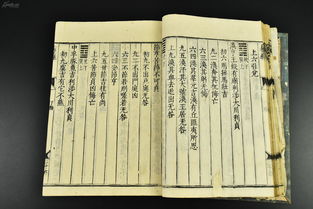 上六引兌
渙亨王假有廟利涉大川利貞
初六用拯馬壯吉
九二渙奔其机悔亡
六三渙其躬无悔
六四渙其群元吉渙有丘匪夷所思
九五渙汗其大號渙王居无咎
上九渙其血去逖出无咎
節亨苦節不可貞
初九不出戶庭无咎
九二不出門庭凶
六三不節若則嗟若无咎
六四安節亨
九五甘節吉往有尚
上六苦節貞凶悔亡
中孚豚魚吉利涉大川利貞
初九虞吉有它不燕